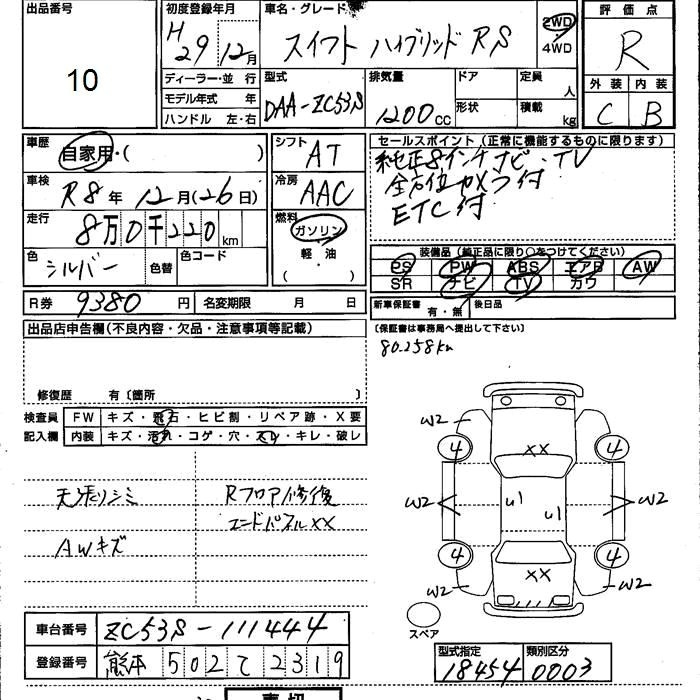 出品番号
10
初度登録年月
H29 12月
ディーラー・並 行
モデル年式 年
ハンドル 左・右
車名・グレード
スイフト ハイブリッド RS
2WD
・
4WD
型式
DAA-ZC53S
排気量
1200cc
ドア
形状
定員
人
積載
kg
評価点
R
外装
C
内装
B
車歴
自家用・( )
車検
R8年 12月(26日)
走行
8万0千220km
色
シルバー
色替
色コード
シフト
AT
冷房
AAC
燃料
ガソリン
軽・油
( )
セールスポイント(正常に機能するものに限ります)
純正8インチナビ・TV
全方位カメラ付
ETC付
装備品(純正品に限り○をつけてください)
PS PW ABS エアB AW
SR ナビ TV カワ
R券 9380円 名変期限 月 日
新車保証書
有・無
後日品
(保証書は事務局へ提出して下さい)
80.258km
出品店申告欄(不良内容・欠品・注意事項等記載)
修復歴 有〔箇所 〕
検査員
記入欄
FW キズ・飛石・ヒビ割・リペア跡・X要
内装 キズ・汚れ・コゲ・穴・スレ・キレ・破レ
天張りシミ
AWキズ
Rフロア修復
エンドパネルXX
W2 W2
4 XX 4
W2 U1 U1 W2
4 XX 4
W2 W2
スペア
車台番号 ZC53S-111444
登録番号 熊本 502 て 2319
型式指定
18454
類別区分
0003